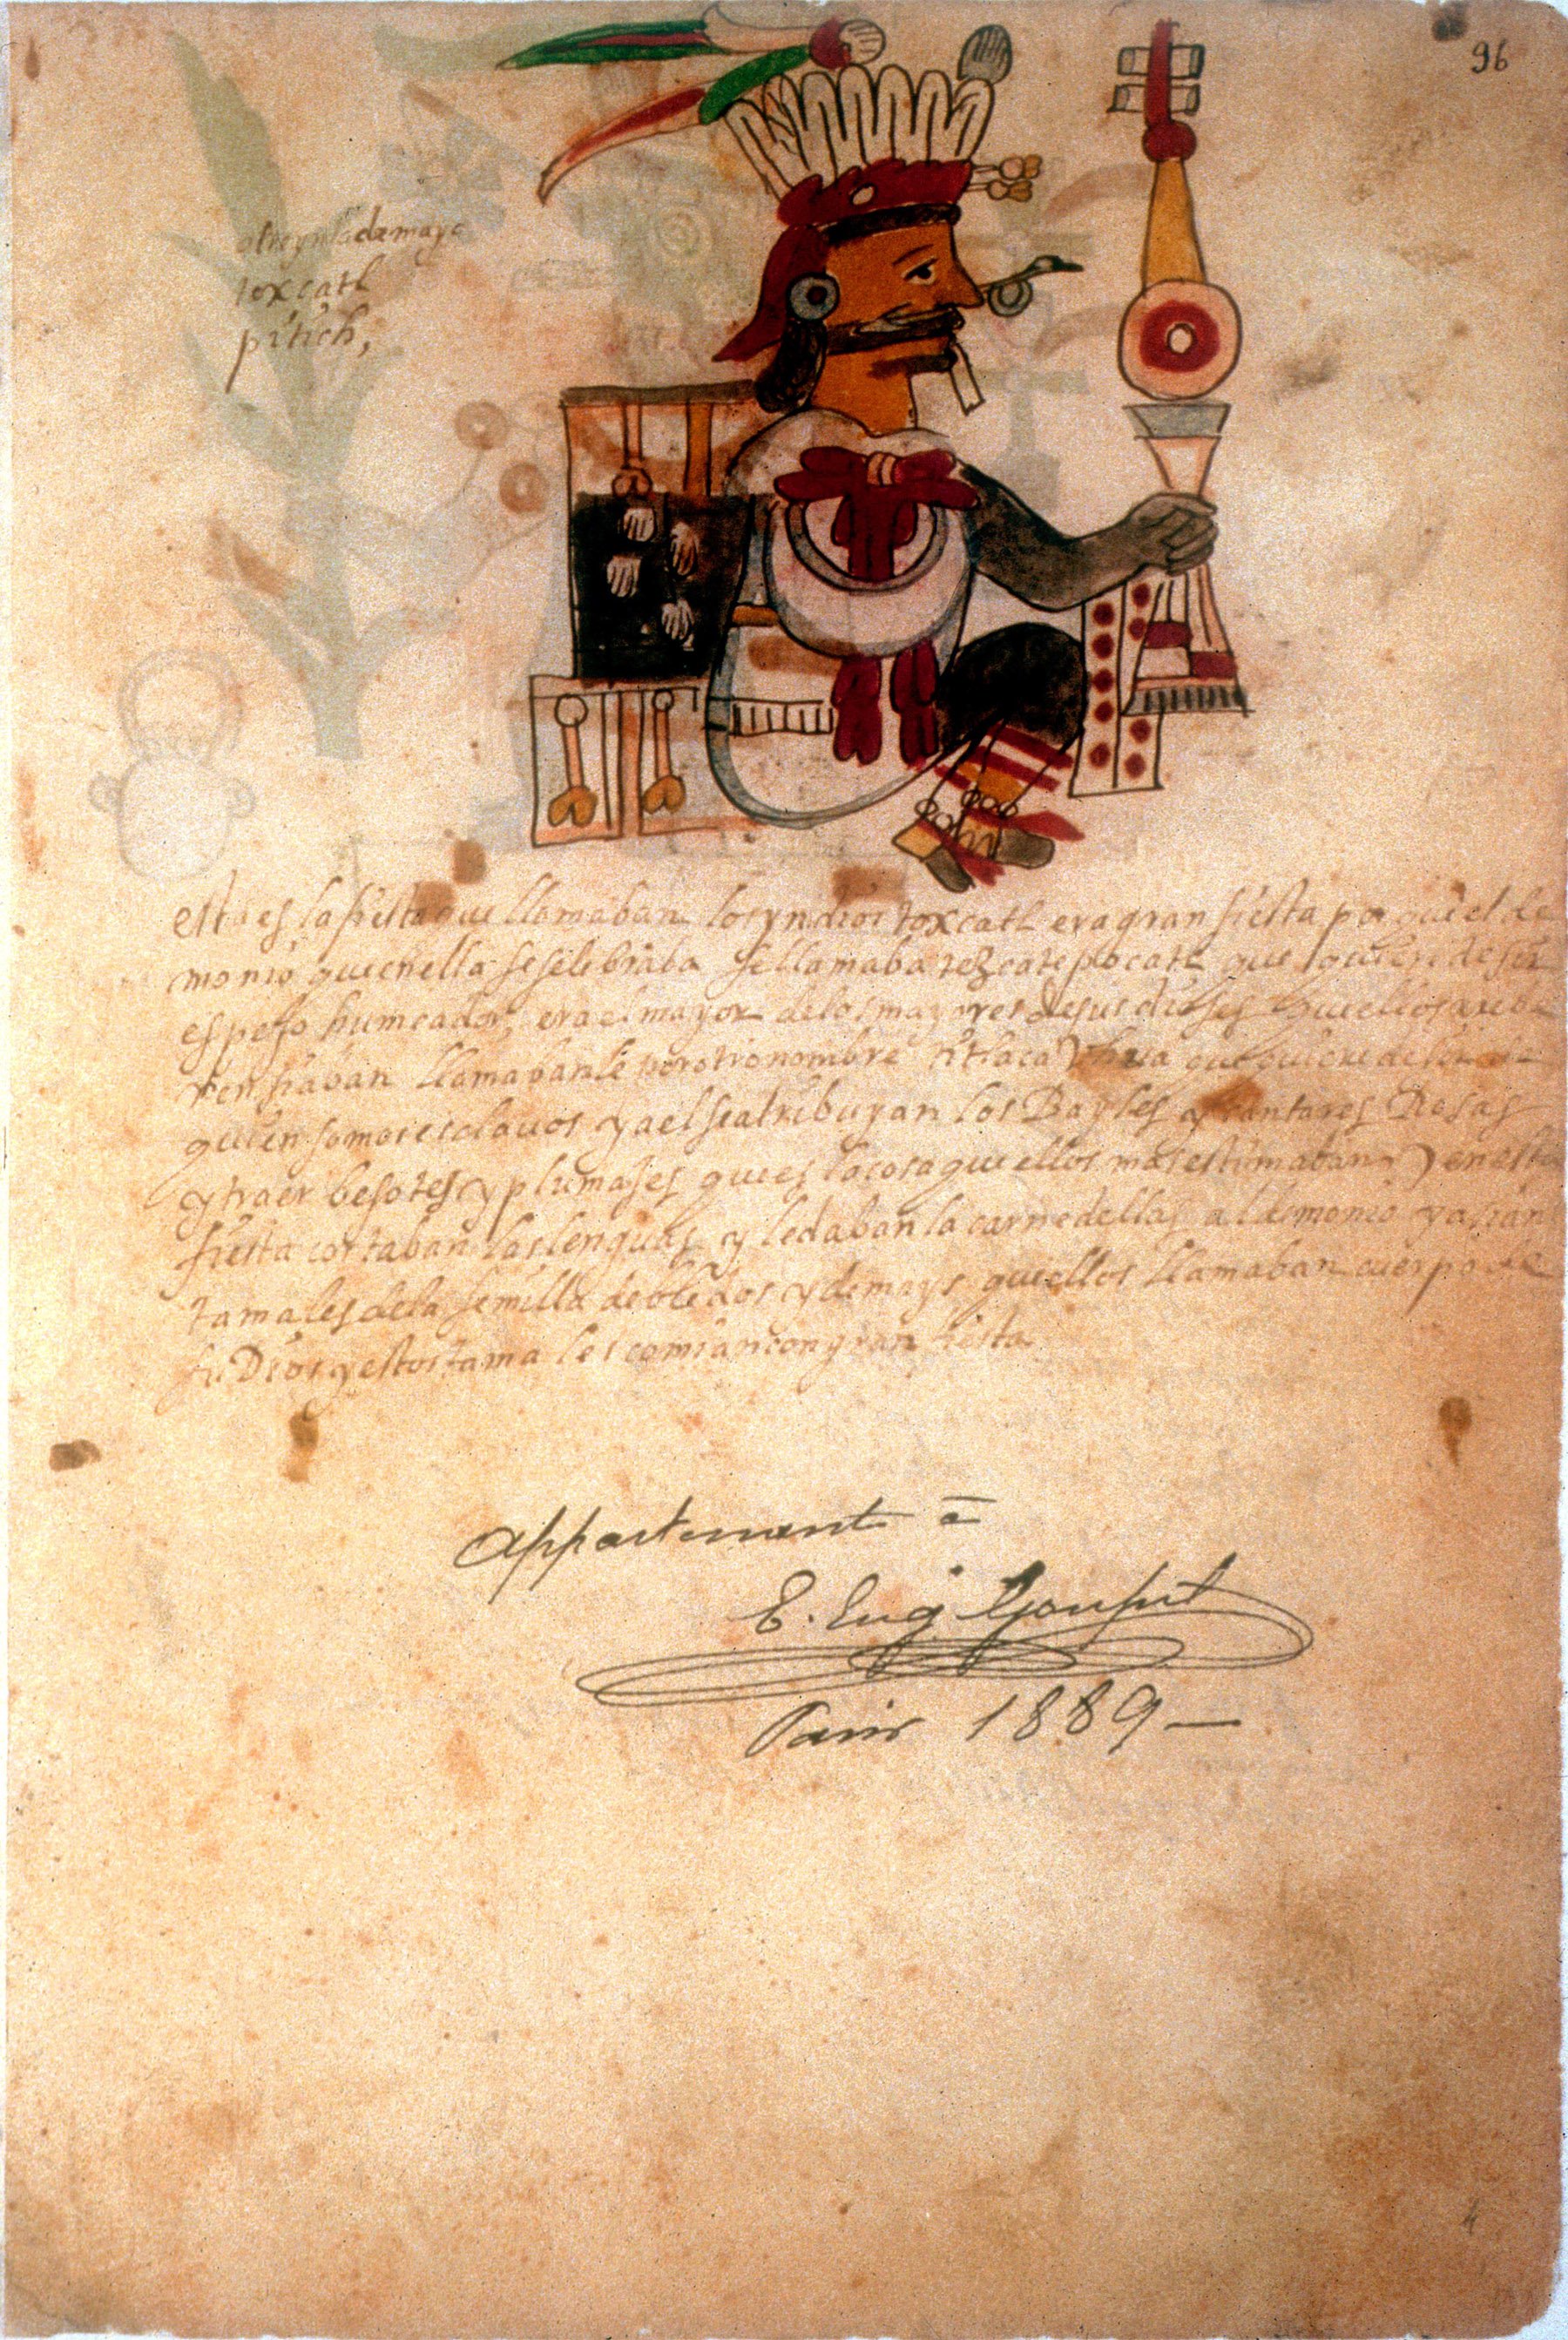 96
toxcatl
pitich,
esta es la fiesta que llamaban los yndios toxcatl era gran fiesta por que el de
monio que en ella se selebraba se llamaba tezcatepocatl que quiere desir
espejo humeador, era el mayor de los mayores de sus dioses que ellos rebe
rensiaban llamabanle por otro nombre titlaca que quiere desir de
quien somos esclavos y a el se atribuyan los Bayles y cantares Rosas
y traer besotes y plumajes que es la cosa que ellos mas estimaban, y en esta
fiesta cortaban las lenguas y le daban la carne dellas al demonio y asian
tamales de la semilla de bledos y de mays que ellos llamaban cuerpo de
su Dios y estos tamales comian con gran fiesta
Appartenant à
E. Eug Goupil
Paris 1889 —
4